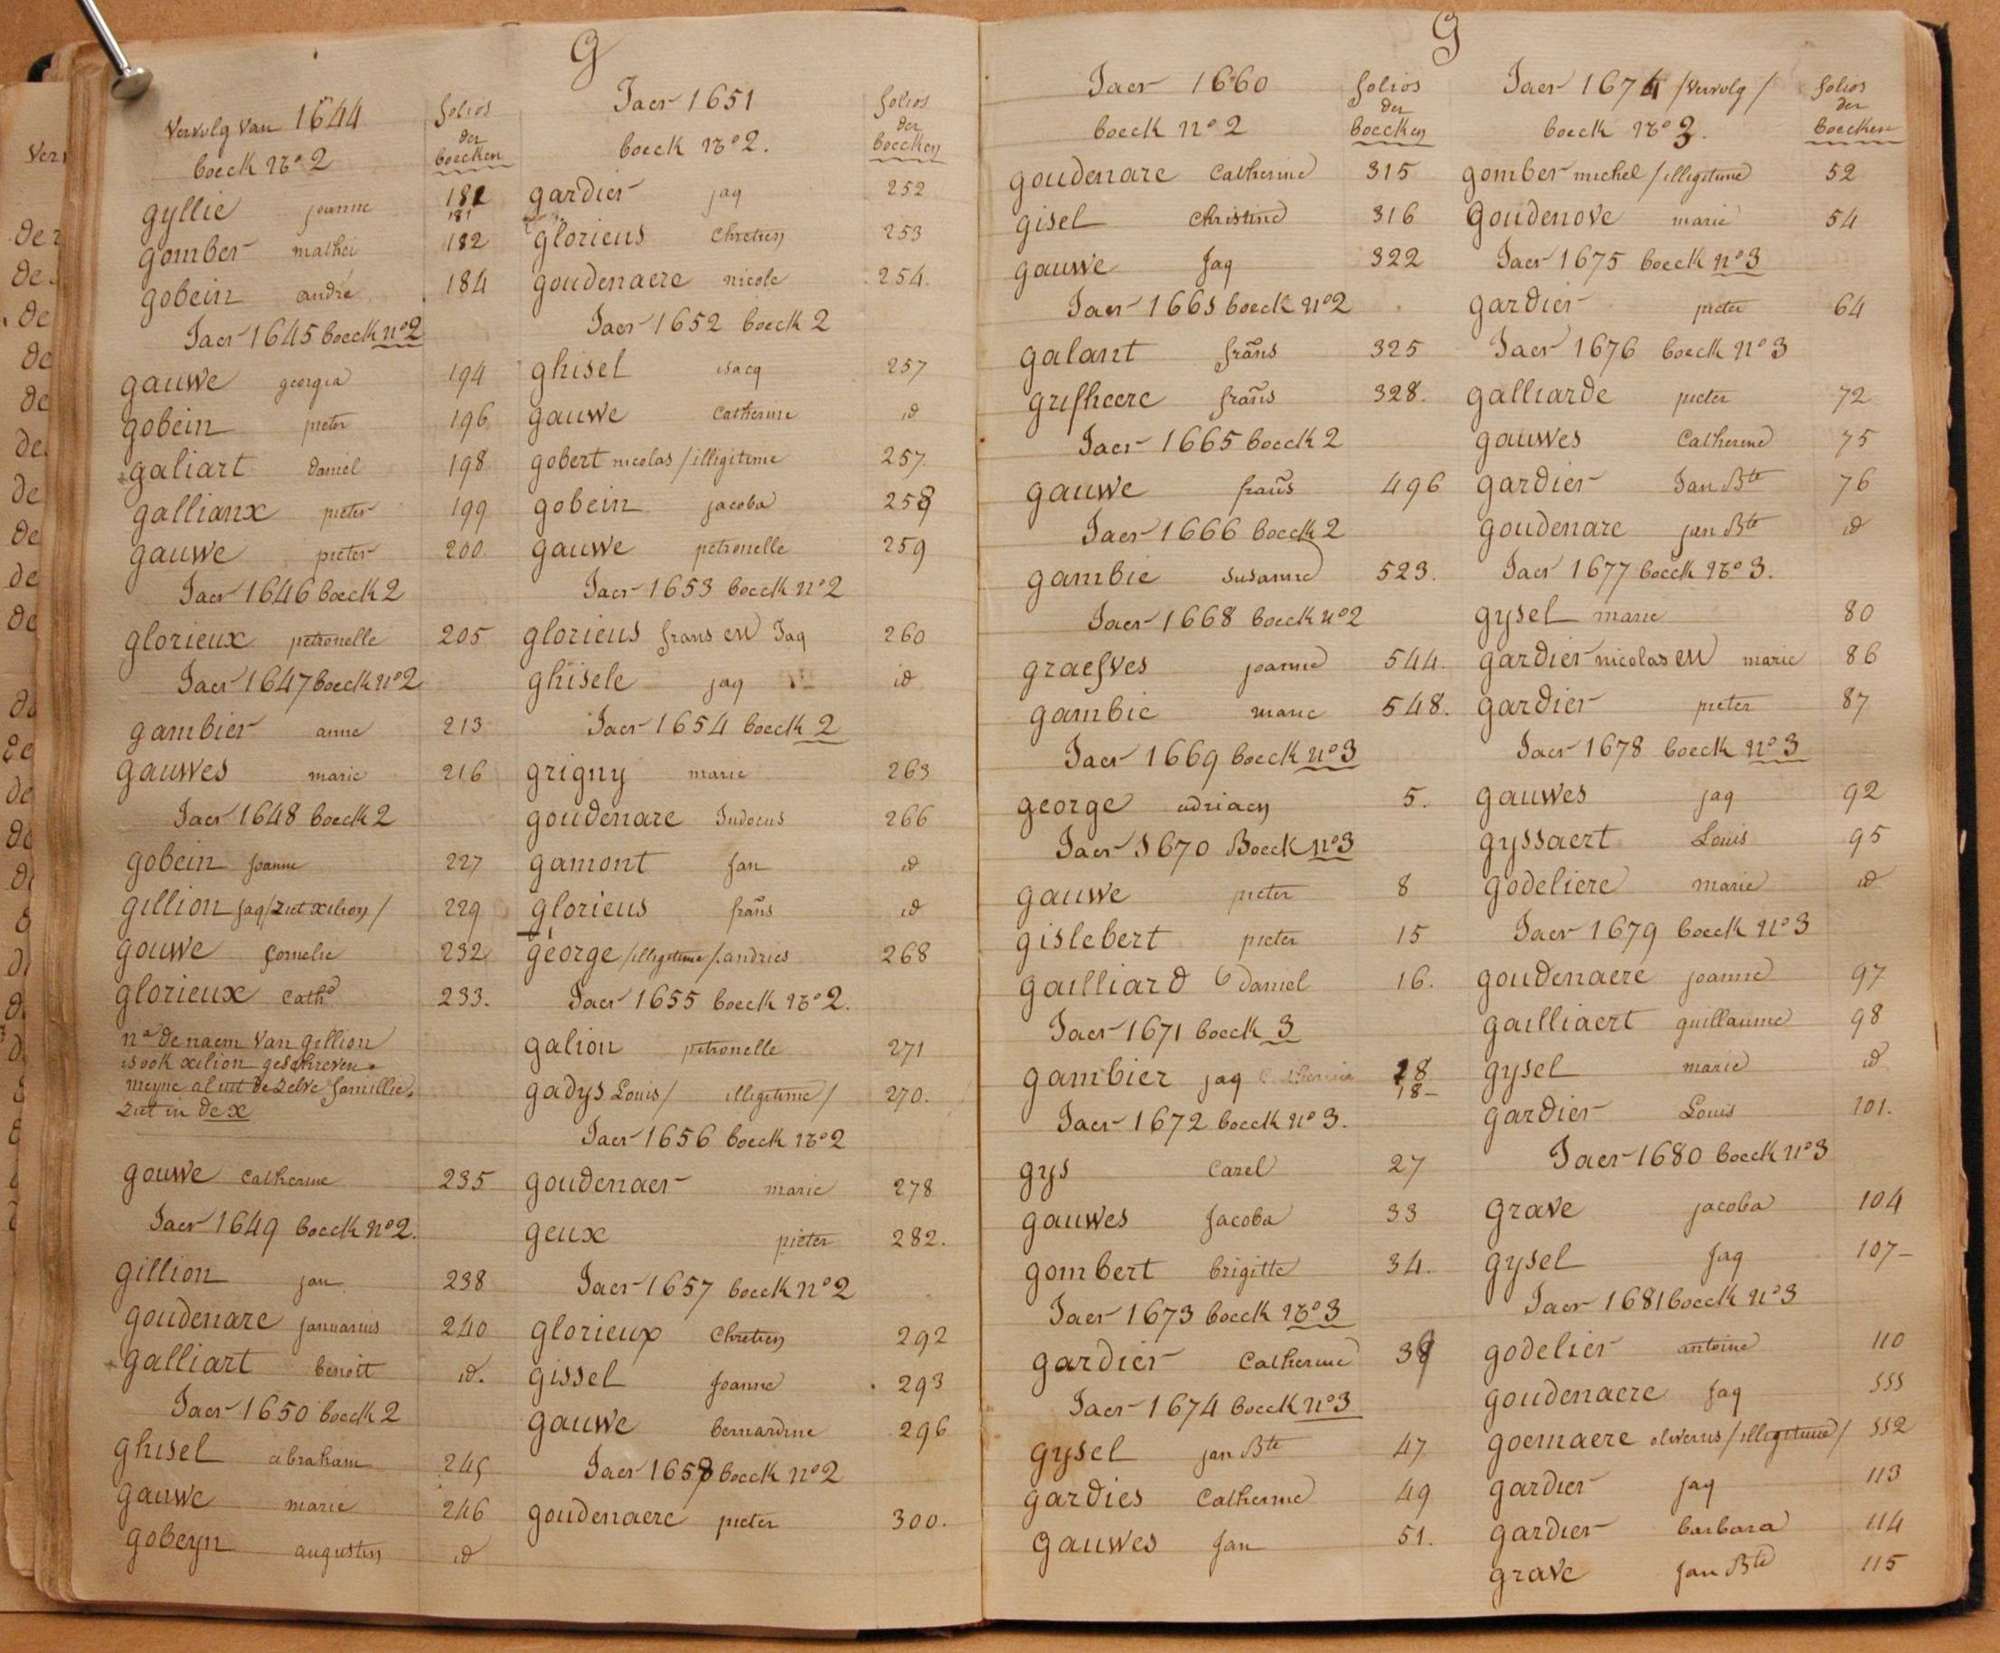 G
vervolg van 1644
folios
der
boecken
boeck no 2
gyllie joanne 181
181
gomber mathei 182
gobein andré 184
Jaer 1645 boeck no 2
gauwe georgia 194
gobein pieter 196
galiart daniel 198
gallianx pieter 199
gauwe pieter 200
Jaer 1646 boeck 2
glorieux petronelle 205
Jaer 1647 boeck no 2
gambier anne 213
gauwes marie 216
Jaer 1648 boeck 2
gobein joanne 227
gillion jaq /ziet xilion/ 229
gouwe cornelie 232
glorieux Cathe 233.
na de naem van gillion
is ook xilion geschreven
meyne al uit de zelve famillie.
ziet in de x
gouwe catherine 235
Jaer 1649 boeck no 2.
gillion jan 238
goudenare januarius 240
galliart benoit id.
Jaer 1650 boeck 2
ghisel abraham 245
gauwe marie 246
gobeyn augustin id
Jaer 1651
folios
der
boecken
boeck no 2.
gardier jaq 252
glorieus Chretien 253
goudenaere nicole 254.
Jaer 1652 boeck 2
ghisel isacq 257
gauwe catherine id
gobert nicolas /illigitime 257.
gobein jacoba 258
gauwe petronelle 259
Jaer 1653 boeck no 2
glorieus frans en Jaq 260
ghisele jaq id
Jaer 1654 boeck 2
grigny marie 263
goudenare Judocus 266
gamont jan id
glorieus frans id
george /illigitime/ andries 268
Jaer 1655 boeck no 2.
galion petronelle 271
gadys Louis / illigitime / 270.
Jaer 1656 boeck no 2
goudenaer marie 278
geux pieter 282.
Jaer 1657 boeck no 2
glorieux Chretien 292
gissel joanne 293
gauwe bernardine 296
Jaer 1658 boeck no 2
goudenaere pieter 300.
G
Jaer 1660
folios
der
boecken
boeck no 2
goudenare Catherine 315
gisel Christine 316
gauwe Jaq 322
Jaer 1663 boeck no 2
galant frans 325
grisheere frans 328.
Jaer 1665 boeck 2
gauwe frans 496
Jaer 1666 boeck 2
gambie susanne 523.
Jaer 1668 boeck no 2
graesves joanne 544.
gambie marie 548.
Jaer 1669 boeck no 3
george adriaen 5.
Jaer 1670 Boeck no 3
gauwe pieter 8
gislebert pieter 15
gailliard Daniel 16.
Jaer 1671 boeck 3
gambier jaq 18
18-
Jaer 1672 boeck no 3.
gys Carel 27
gauwes Jacoba 33
gombert brigitte 34.
Jaer 1673 boeck no 3
gardier Catherine 39
Jaer 1674 boeck no 3
gysel jan Bte 47
gardies Catherine 49
gauwes Jan 51.
Jaer 1674 /vervolg/
folios
der
boecken
boeck no 3.
gomber michel /illigitime 52
goudenove marie 54
Jaer 1675 boeck no 3
gardier pieter 64
Jaer 1676 boeck no 3
galliarde pieter 72
gauwes Catherine 75
gardier Jan Bte 76
goudenare jan Bte id
Jaer 1677 boeck no 3.
gysel marie 80
gardier nicolas en marie 86
gardier pieter 87
Jaer 1678 boeck no 3
gauwes jaq 92
gyssaert Louis 95
godeliere marie id
Jaer 1679 boeck no 3
goudenaere joanne 97
gailliaert guillaume 98
gysel marie id
gardier Louis 101.
Jaer 1680 boeck no 3
grave jacoba 104
gysel Jaq 107-
Jaer 1681 boeck no 3
godelier antoine 110
goudenaere jaq 111
goemaere oliverius /illigitime/ 112
gardier jaq 113
gardier barbara 114
grave Jan Bte 115